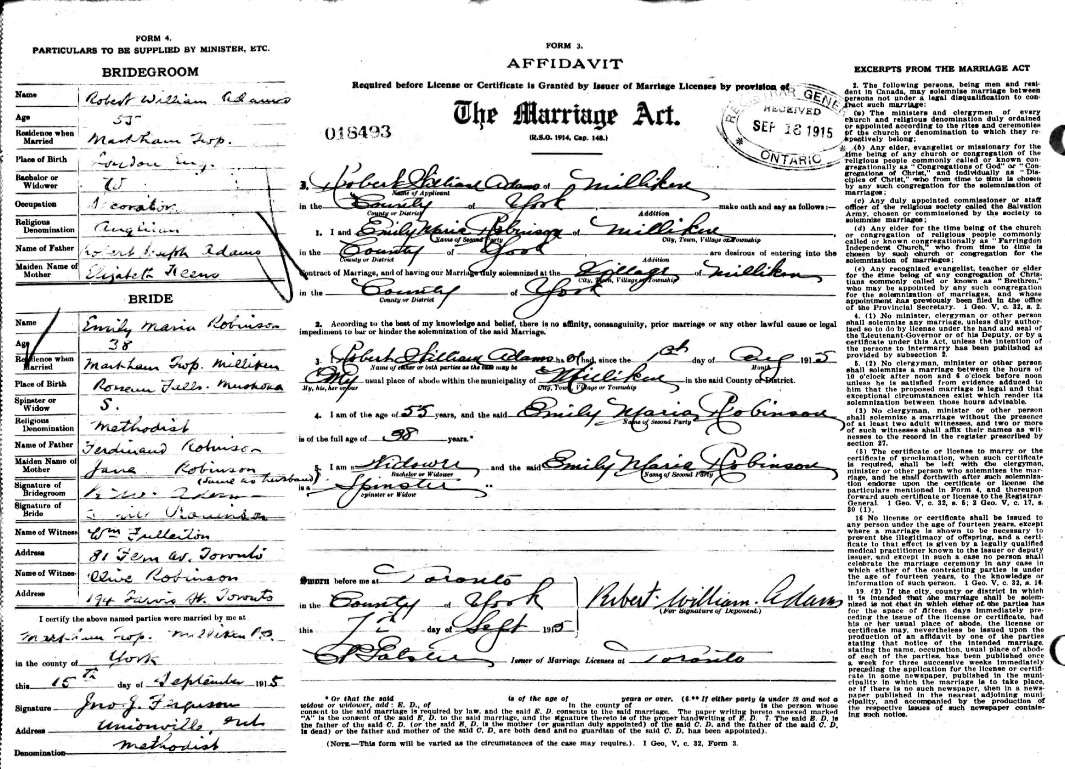 FORM 4.
PARTICULARS TO BE SUPPLIED BY MINISTER, ETC.
BRIDEGROOM
Name Robert William Adams
Age 55
Residence when Married Markham Twp.
Place of Birth London Eng.
Bachelor or Widower W
Occupation Decorator
Religious Denomination Anglican
Name of Father Robert Adams
Maiden Name of Mother Elizabeth
BRIDE
Name Emily Maria Robinson
Age 38
Residence when Married Markham Twp. Milliken
Place of Birth Falls. Muskoka
Spinster or Widow S.
Religious Denomination Methodist
Name of Father Ferdinand Robinson
Maiden Name of Mother Jane Robinson
(same as husband)
Signature of Bridegroom R. Wm. Adams
Signature of Bride Robinson
Name of Witness Wm Fullerton
Address 81 Fern Av. Toronto
Name of Witness Olive Robinson
Address 194 Jarvis St. Toronto
I certify the above named parties were married by me at
Markham Twp. Milliken P.O.
in the county of York
this 15th day of September 1915
Signature Jno. J. Ferguson
Address Unionville, Ont
Denomination Methodist
FORM 3.
AFFIDAVIT
Required before License or Certificate is Granted by Issuer of Marriage Licenses by provision of
The Marriage Act.
(R.S.O. 1914, Cap. 148.)
018493
REGISTRAR GENE
RECEIVED
SEP 18 1915
ONTARIO
I, Robert William Adams of Milliken
Name of Applicant
in the County of York make oath and say as follows:—
County or District Addition
1. I and Emily Maria Robinson of Milliken
Name of Second Party City, Town, Village or Township
in the County of York are desirous of entering into the
County or District Addition
Contract of Marriage, and of having our Marriage duly solemnized at the Village of Milliken
City, Town, Village or Township
in the County of York
County or District
2. According to the best of my knowledge and belief, there is no affinity, consanguinity, prior marriage or any other lawful cause or legal
impediment to bar or hinder the solemnization of the said Marriage.
3. Robert William Adams has had, since the day of Aug 1915
Name of either or both parties as the case may be Month
My usual place of abode within the municipality of Milliken in the said County or District.
My, his, her or our City, Town, Village or Township
4. I am of the age of 55 years, and the said Emily Maria Robinson
Name of Second Party
is of the full age of 38 years.*
5. I am a Widower and the said Emily Maria Robinson
Bachelor or Widower Name of Second Party
is a Spinster
Spinster or Widow
Sworn before me at Toronto
in the County of York
this day of Sept 1915
Robert William Adams
(For Signature of Deponent.)
Issuer of Marriage Licenses at Toronto
* Or that the said is of the age of years or over. (§ ** If either party is under 18 and not a
widow or widower, add: E. D., of in the county of is the person whose
consent to the said marriage is required by law, and the said E. D. consents to the said marriage. The paper writing hereto annexed marked
"A" is the consent of the said E. D. to the said marriage, and the signature thereto is of the proper handwriting of E. D. 7. The said E. D. is
the father of the said C. D. (or the said E. D. is the mother (or guardian duly appointed) of the said C. D. and the father of the said C. D.
is dead) or the father and mother of the said C. D. are both dead and no guardian of the said C. D. has been appointed).
(NOTE.—This form will be varied as the circumstances of the case may require.). 1 Geo, V, c. 32, Form 3.
EXCERPTS FROM THE MARRIAGE ACT
2. The following persons, being men and resi-
dent in Canada, may solemnize marriage between
persons not under a legal disqualification to con-
tract such marriage:
(a) The ministers and clergymen of every
church and religious denomination duly ordained
or appointed according to the rites and ceremonies
of the church or denomination to which they re-
spectively belong;
(b) Any elder, evangelist or missionary for the
time being of any church or congregation of the
religious people commonly called or known con-
gregationally as "Congregations of God" or "Con-
gregations of Christ," and individually as "Dis-
ciples of Christ," who from time to time is chosen
by any such congregation for the solemnization of
marriages;
(c) Any duly appointed commissioner or staff
officer of the religious society called the Salvation
Army, chosen or commissioned by the society to
solemnize marriages;
(d) Any elder for the time being of the church
or congregation of religious people commonly
called or known congregationally as "Farringdon
Independent Church," who from time to time is
chosen by such church or congregation for the
solemnization of marriages;
(e) Any recognized evangelist, teacher or elder
for the time being of any congregation of Chris-
tians commonly called or known as "Brethren,"
who may be appointed by any such congregation
for the solemnization of marriages, and whose
appointment has previously been filed in the office
of the Provincial Secretary. 1 Geo. V, c. 32, s. 2.
4. (1) No minister, clergyman or other person
shall solemnize any marriage, unless duly author-
ized so to do by license under the hand and seal of
the Lieutenant-Governor or of his Deputy, or by a
certificate under this Act, unless the intention of
the persons to intermarry has been published as
provided by subsection 2.
(2) No clergyman, minister or other person
shall solemnize a marriage between the hours of
10 o'clock after noon and 6 o'clock before noon
unless he is satisfied from evidence adduced to
him that the proposed marriage is legal and that
exceptional circumstances exist which render its
solemnization between those hours advisable.
(3) No clergyman, minister or other person
shall solemnize a marriage without the presence
of at least two adult witnesses, and two or more
of such witnesses shall affix their names as wit-
nesses to the record in the register prescribed by
section 27.
(5) The certificate or license to marry or the
certificate of proclamation, when such certificate
is required, shall be left with the clergyman,
minister or other person who solemnizes the mar-
riage, and he shall forthwith after such solemniza-
tion endorse upon the certificate or license the
particulars mentioned in Form 4, and thereupon
forward such certificate or license to the Registrar-
General. 1 Geo. V, c. 32, s. 5; 2 Geo. V, c. 17, s.
30 (1).
16 No license or certificate shall be issued to
any person under the age of fourteen years, except
where a marriage is shown to be necessary to
prevent the illegitimacy of offspring, and a certi-
ficate to that effect is given by a legally qualified
medical practitioner known to the issuer or deputy
issuer, and except in such a case no person shall
celebrate the marriage ceremony in any case in
which either of the contracting parties is under
the age of fourteen years, to the knowledge or
information of such person. 1 Geo. V, c. 32, s. 16.
19. (2) If the city, county or district in which
it is intended that the marriage shall be solem-
nized is not that in which either of the parties has
for the space of fifteen days immediately pre-
ceding the issue of the license or certificate, had
his or her usual place of abode, the license or
certificate may, nevertheless be issued upon the
production of an affidavit by one of the parties
stating that notice of the intended marriage,
stating the name, occupation, usual place of abode
of each of the parties, has been published once
a week for three successive weeks immediately
preceding the application for the license or certifi-
cate in some newspaper, published in the muni-
cipality in which the marriage is to take place,
or if there is no such newspaper, then in a news-
paper published in the nearest adjoining muni-
cipality, and accompanied by the production of
the respective issues of such newspaper contain-
ing such notice.